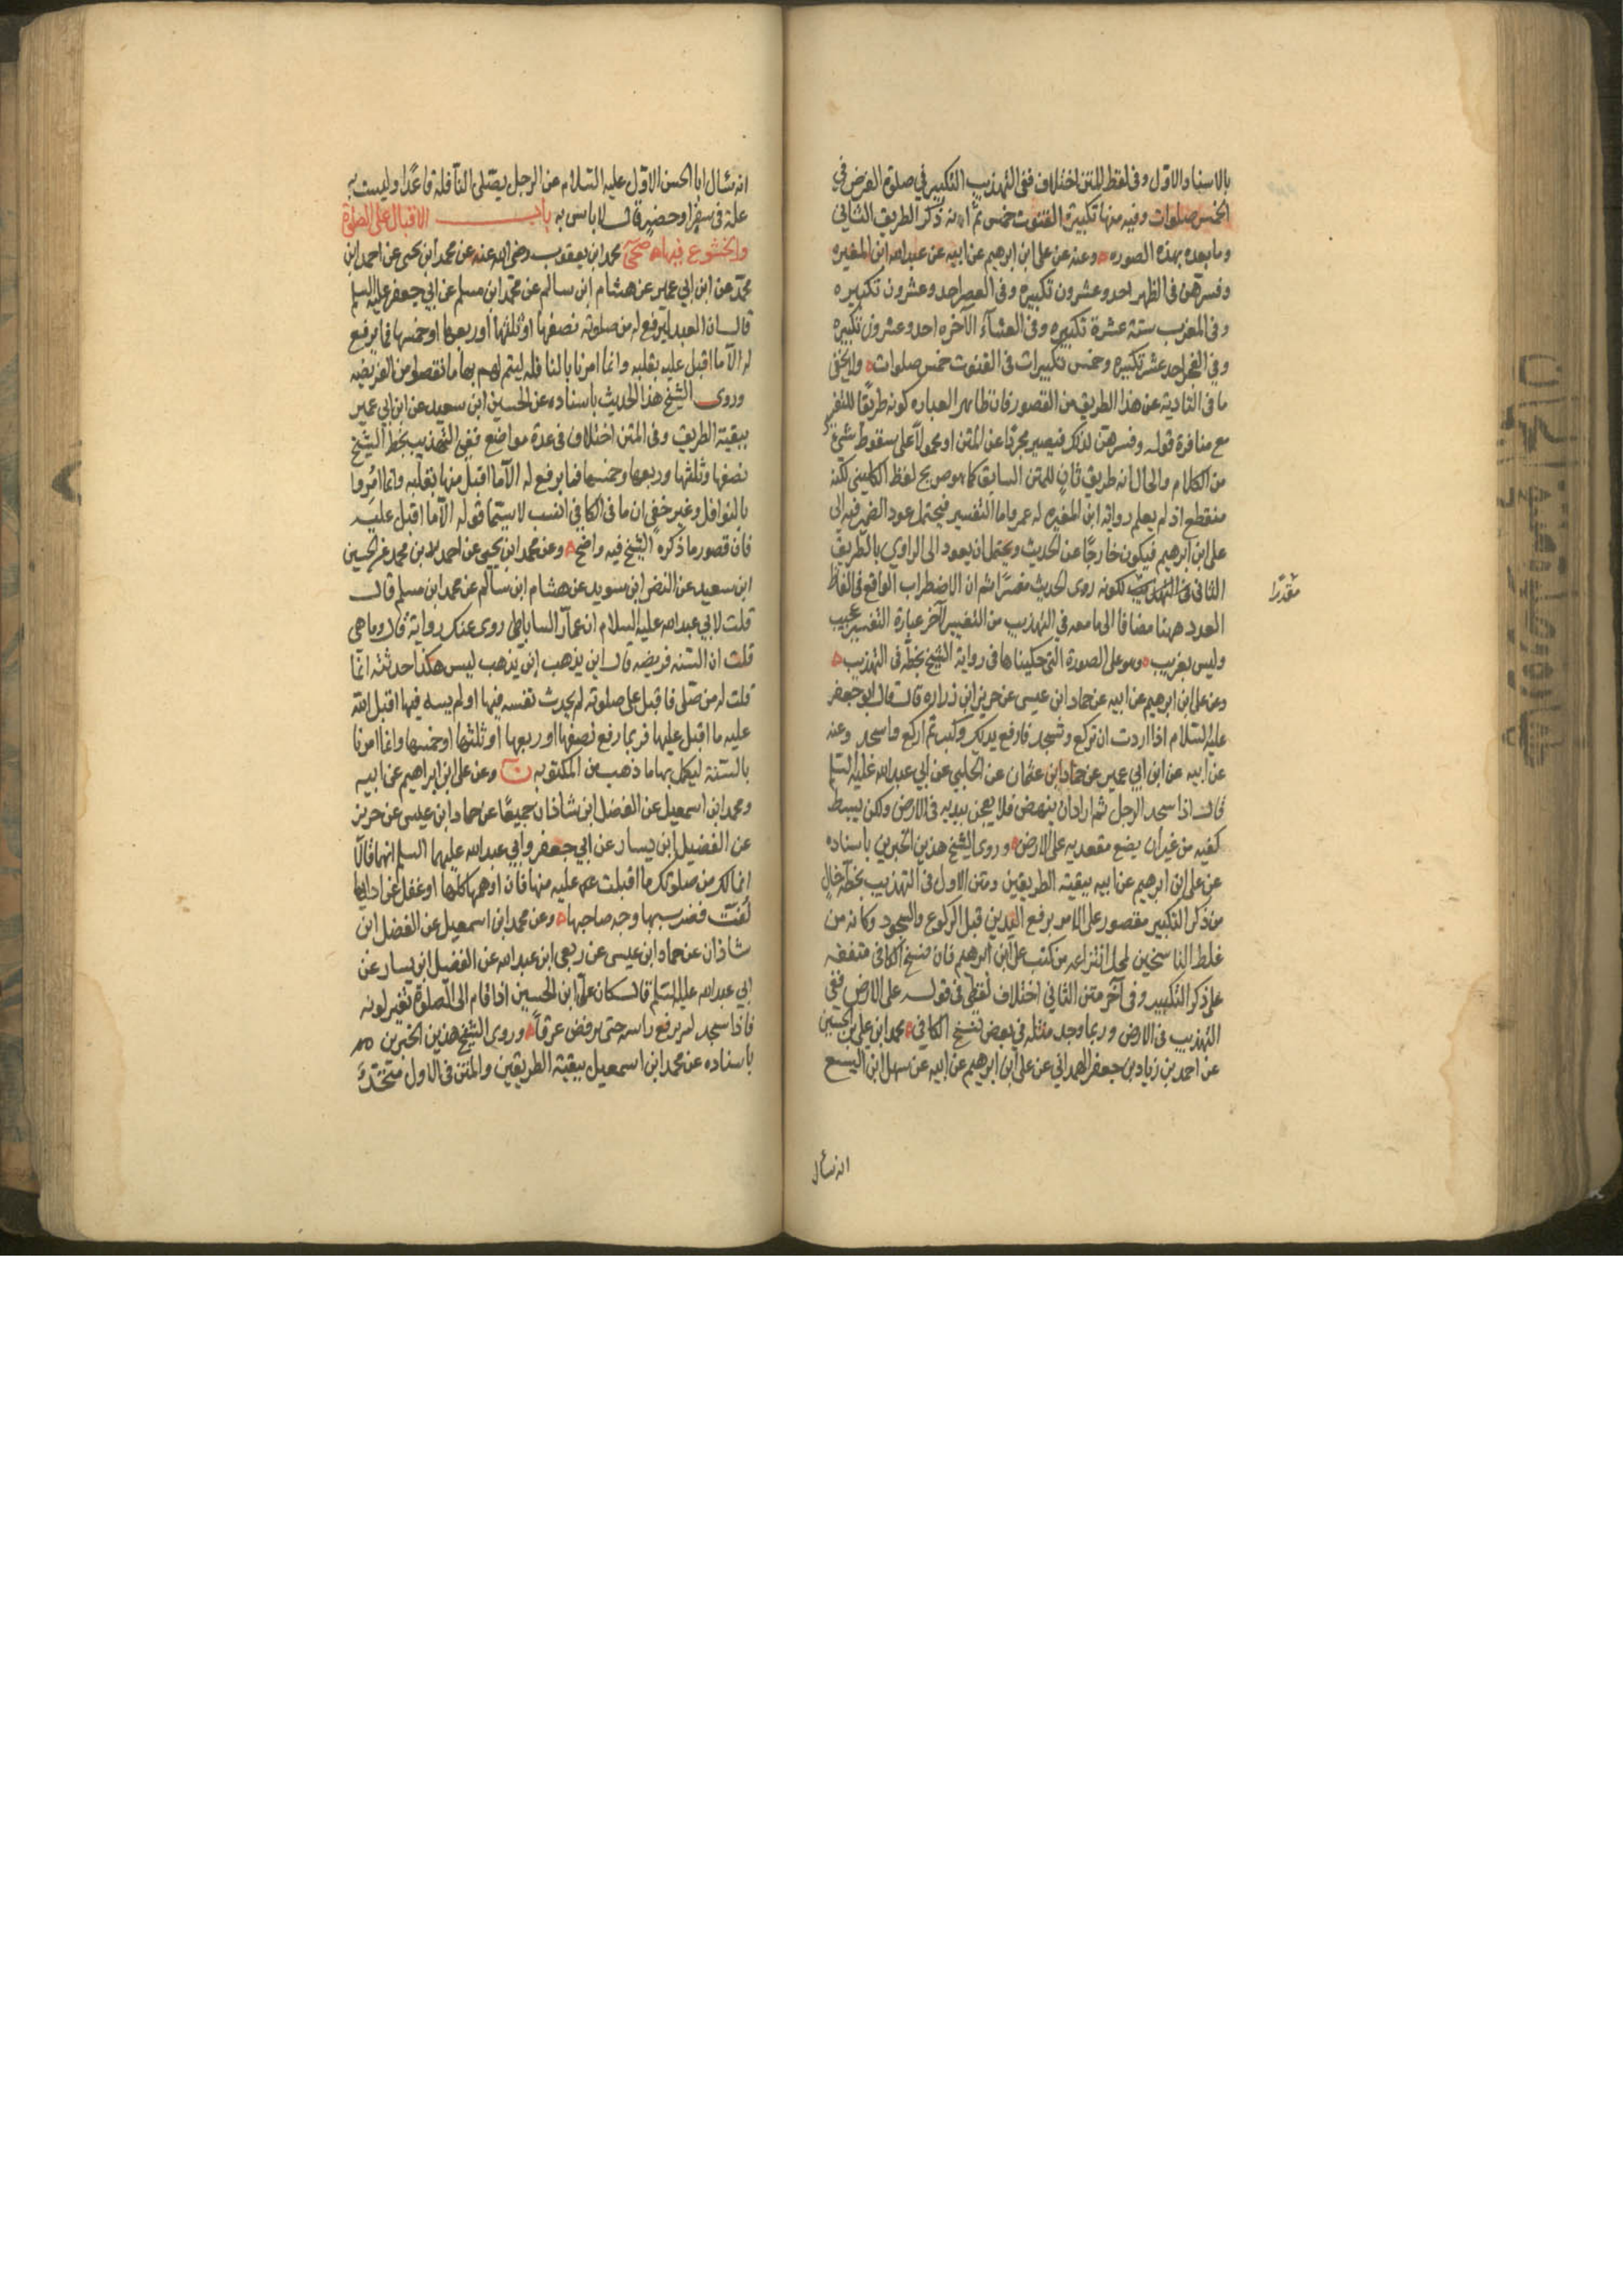 بالاسناد الاول وفى لفظ المتن اختلاف ففى التهذيب التكبير في صلوة الفرض في
الخمس صلوات وفيه منها تكبيرة القنوت خمس ثم انه ذكر الطريق الثانى
وما بعده بهذه الصوره وعنه عن على ابن ابرهيم عن ابيه عن عبدالله ابن المغيره
وفسرهن فى الظهر احد وعشرون تكبيره وفى العصر احد وعشرون تكبيره
وفى المغرب ستة عشرة تكبيره وفى العشآء الآخره احد وعشرون تكبيره
وفى الفجر احد عشر تكبيره وخمس تكبيرات فى القنوت خمس صلوات ولا يخفى
ما فى التادية عن هذا الطريق من القصور فان ظاهر العباره كونه طريقا للتفسير
مع منافرة قوله وفسرهن لذلك فيصير مجردا عن المتن او محمولا على سقوط شئ
من الكلام والحال انه طريق ثان للمتن السابق كما هو صريح لفظ الكلينى لكنه
منقطع اذ لم يعلم رواية ابن المغيره له عمن واما التفسير فيحتمل عود الضمير فيه الى
على ابن ابرهيم فيكون خارجا عن الحديث ويحتمل ان يعود الى الراوى بالطريق
الثانى لكونه روى الحديث مفسرا ثم ان الاضطراب الواقع فى الفاظ
مقدرا
العدد ههنا مضافا الى ما معه فى التهذيب من التغيير لآخر عبارة التفسير عجيب
وليس بغريب وهو على الصورة التى حكيناها فى رواية الشيخ بخطه فى التهذيب
وعن على ابن ابرهيم عن ابيه عن حماد ابن عيسى عن حريز ابن زراره قال قال ابو جعفر
عليه السلام اذا اردت ان تركع وتسجد فارفع يديك وكبر ثم اركع واسجد وعنه
عن ابيه عن ابن ابى عمير عن حماد ابن عثمان عن الحلبى عن ابى عبدالله عليه السلم
قال اذا سجد الرجل ثم اراد ان ينهض فلا يعجن بيديه فى الارض ولكن يبسط
كفيه من غير ان يضع مقعديه على الارض وروى الشيخ هذين الخبرين باسناده
عن على ابن ابرهيم عن ابيه ببقية الطريقين ومتن الاول فى التهذيب بخطه خال
من ذكر التكبير مقصور على الامر برفع اليدين قبل الركوع والسجود وكانه من
غلط الناسخين لمحل انتزاعه من كتب على ابن ابرهيم فان نسخ الكافى متفقه
على ذكر التكبير وفى آخر متن الثانى اختلاف لفظى فى قوله على الارض ففى
التهذيب فى الارض وربما وجد مثله فى بعض نسخ الكافى محمد ابن على ابن الحسين
عن احمد بن زياد بن جعفر الهمدانى عن على ابن ابرهيم عن ابيه عن سهل ابن اليسع
انه سأل
انه سأل ابا الحسن الاول عليه السلام عن الرجل يصلى النافلة قاعدا وليست به
علة فى سفر او حضر قال لا باس به باب الاقبال على الصلوة
والخشوع فيها صحى محمد ابن يعقوب رضى الله عنه عن محمد ابن يحيى عن احمد ابن
محمد عن ابن ابى عمير عن هشام ابن سالم عن محمد ابن مسلم عن ابى جعفر عليه السلم
قال ان العبد ليرفع له من صلوته نصفها او ثلثها او ربعها او خمسها فما يرفع
له الا ما اقبل عليه بقلبه وانما امرنا بالنافله ليتم لهم بها ما نقصوا من الفريضه
وروى الشيخ هذا الحديث باسناده عن الحسين ابن سعيد عن ابن ابى عمير
ببقية الطريق وفى المتن اختلاف فى عدة مواضع ففى التهذيب بخط الشيخ
نصفها وثلثها وربعها وخمسها فما يرفع له الا ما اقبل منها بقلبه وانما امروا
بالنوافل وغير خفى ان ما فى الكافى انسب لا سيما قوله الا ما اقبل عليه
فان قصور ما ذكره الشيخ فيه واضح وعن محمد ابن يحيى عن احمد بن محمد عن الحسين
ابن سعيد عن النضر ابن سويد عن هشام ابن سالم عن محمد ابن مسلم قال
قلت لابى عبدالله عليه السلام ان عمار الساباطى روى عنك رواية قال وما هى
قلت ان السنه فريضه قال اين يذهب اين يذهب ليس هكذا حدثته انما
قلت له من صلى فاقبل على صلوته لم يحدث نفسه فيها او لم يسه فيها اقبل الله
عليه ما اقبل عليها فربما رفع نصفها او ربعها او ثلثها او خمسها وانما امرنا
بالسنة ليكمل بها ما ذهب من المكتوبه ن وعن على ابن ابراهيم عن ابيه
ومحمد ابن اسمعيل عن الفضل ابن شاذان جميعا عن حماد ابن عيسى عن حريز
عن الفضيل ابن يسار عن ابى جعفر وابى عبدالله عليهما السلم انهما قالا
انما لك من صلوتك ما اقبلت عليه منها فان اوهمها كلها او غفل عن ادايها
لفت فضرب بها وجه صاحبها وعن محمد ابن اسمعيل عن الفضل ابن
شاذان عن حماد ابن عيسى عن ربعى ابن عبدالله عن الفضيل ابن يسار عن
ابى عبدالله عليه السلم قال كان على ابن الحسين اذا قام الى الصلوة تغير لونه
فاذا سجد لم يرفع راسه حتى يرفض عرقا وروى الشيخ هذين الخبرين
باسناده عن محمد ابن اسمعيل ببقية الطريقين والمتن فى الاول متحد